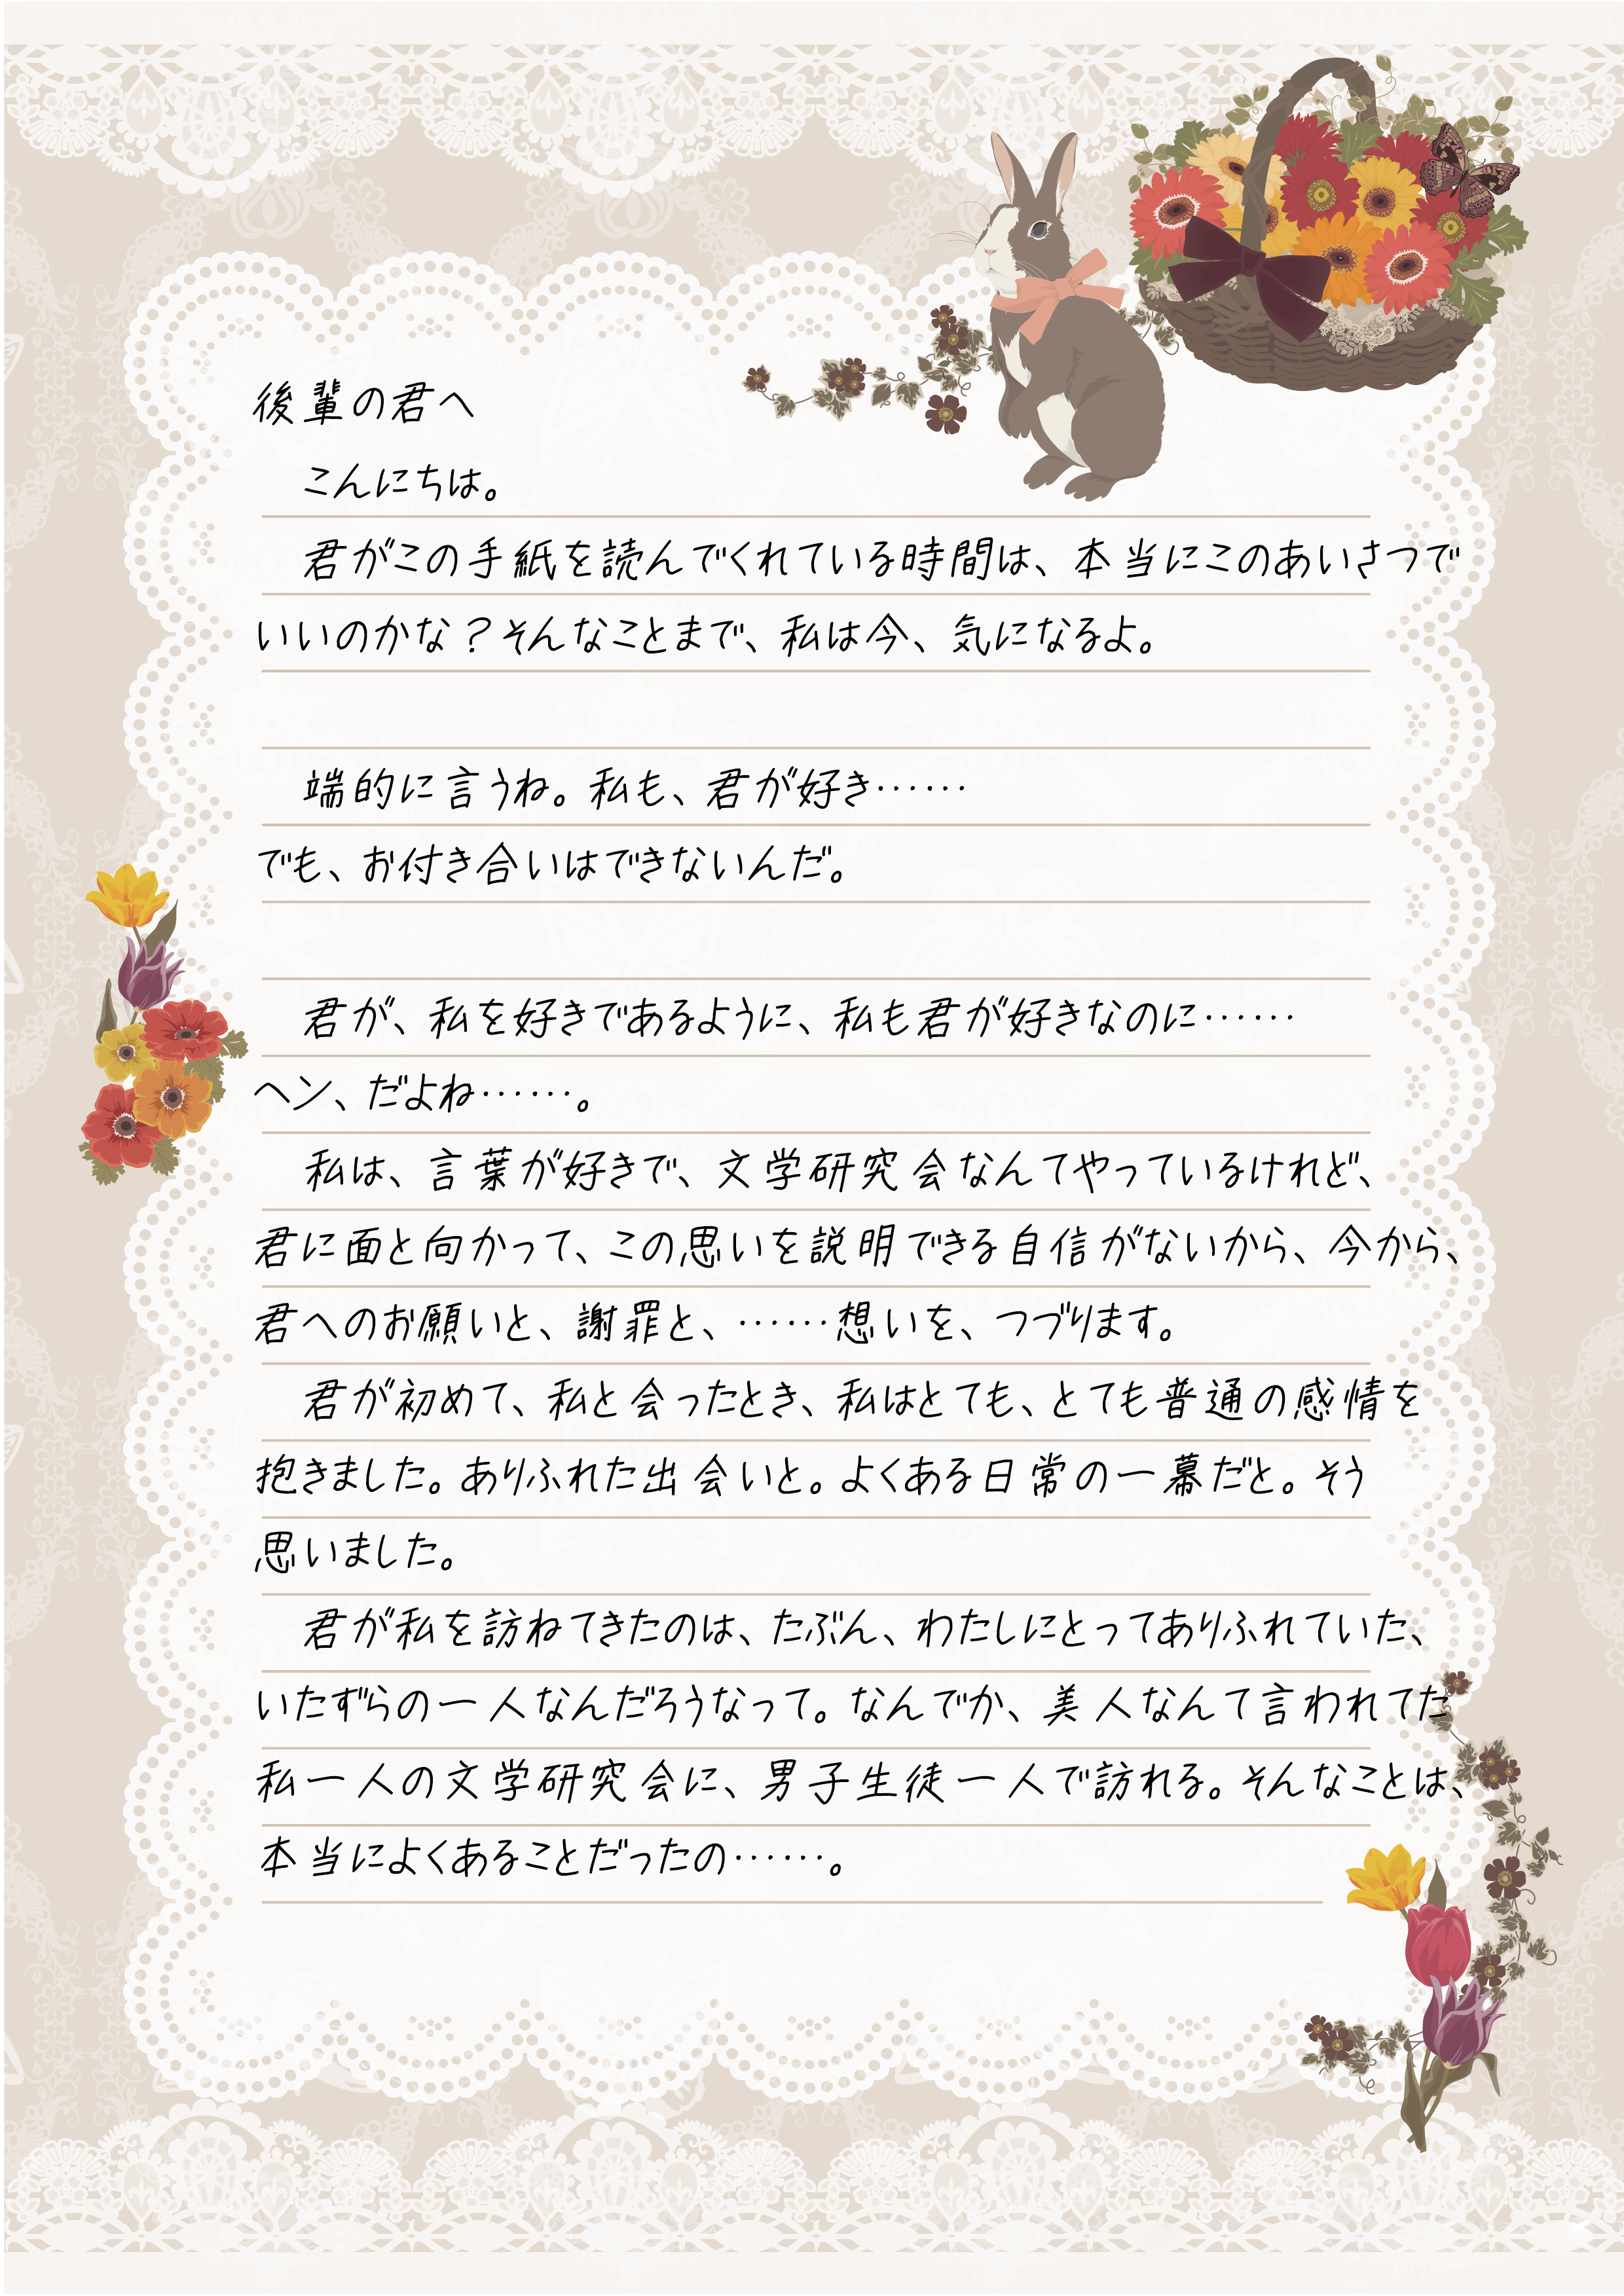 後輩の君へ
こんにちは。
君がこの手紙を読んでくれている時間は、本当にこのあいさつで
いいのかな?そんなことまで、私は今、気になるよ。
端的に言うね。私も、君が好き……
でも、お付き合いはできないんだ。
君が、私を好きであるように、私も君が好きなのに……
ヘン、だよね……。
私は、言葉が好きで、文学研究会なんてやっているけれど、
君に面と向かって、この思いを説明できる自信がないから、今から、
君へのお願いと、謝罪と、……想いを、つづります。
君が初めて、私と会ったとき、私はとても、とても普通の感情を
抱きました。ありふれた出会いと。よくある日常の一幕だと。そう
思いました。
君が私を訪ねてきたのは、たぶん、わたしにとってありふれていた、
いたずらの一人なんだろうなって。なんでか、美人なんて言われてた
私一人の文学研究会に、男子生徒一人で訪れる。そんなことは、
本当によくあることだったの……。